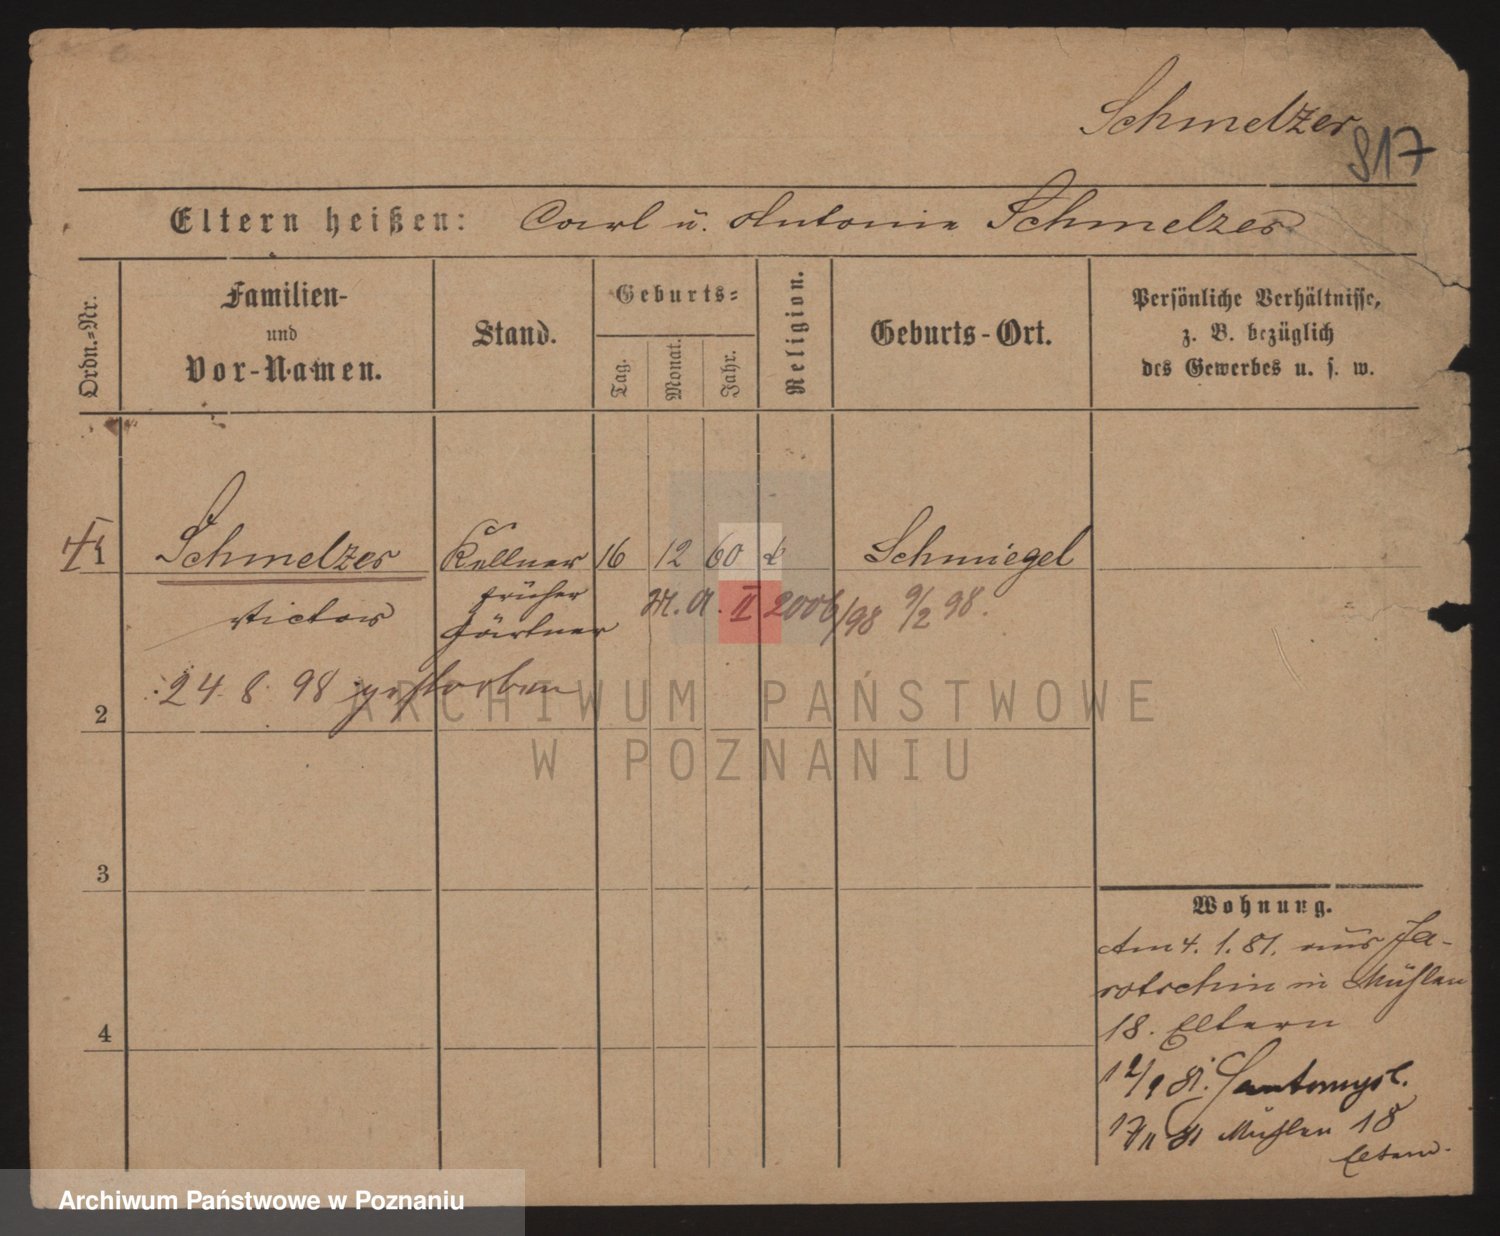 Schmelzer
817
Eltern heißen: Carl u. Antonie Schmelzer
Ordn.-Nr.
Familien-
und
Vor-Namen.
Stand.
Geburts-
Tag.
Monat.
Jahr.
Religion.
Geburts-Ort.
Persönliche Verhältnisse,
z. B. bezüglich
des Gewerbes u. s. w.
1 Schmelzer Kellner 16 12 60 k Schmiegel
Victor
früher
Gärtner
M. A. II 2006/98 9/2 98.
24. 8. 98 gestorben
2
3
4
Wohnung.
Am 4. 1. 81. aus Ja-
rotschin in Mühlen
18. Eltern
12/9 81. Santomysl.
17/11 81 Mühlen 18
Eltern.
ARCHIWUM PAŃSTWOWE
W POZNANIU
Archiwum Państwowe w Poznaniu